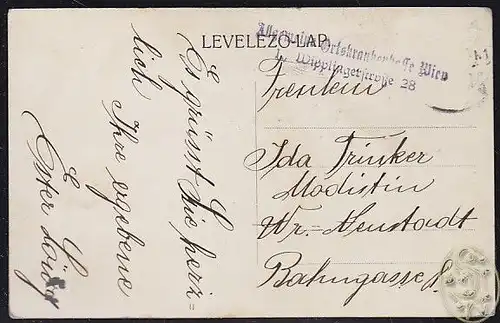 LEVELEZŐ-LAP
Allgemeine Ortskrankenkasse Wien
I., Wipplingerstraße 28
Es grüsst Sie herz=
lich Ihre ergebene
Ester
Freulein
Ida Trinker
Modistin
Wr.=Neustadt
Bahngasse 8.